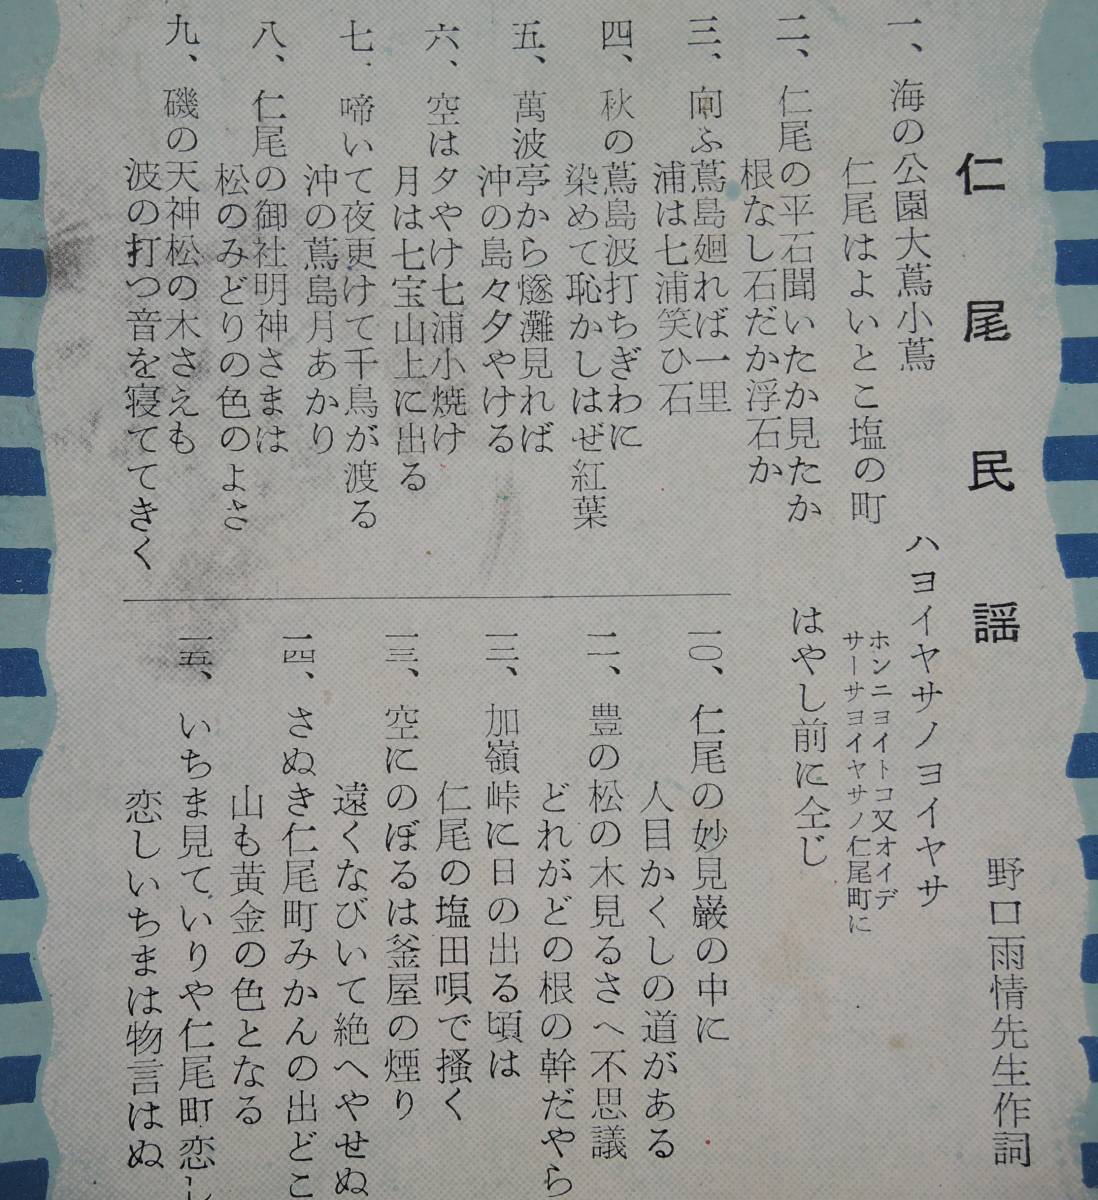 仁尾民謡
野口雨情先生作詞
一、海の公園大蔦小蔦
仁尾はよいとこ塩の町
ハヨイヤサノヨイヤサ
ホンニヨイトコ又オイデ
サーサヨイヤサノ仁尾町に
はやし前に仝じ
二、仁尾の平石聞いたか見たか
根なし石だか浮石か
三、向ふ蔦島廻れば一里
浦は七浦笑ひ石
四、秋の蔦島波打ちぎわに
染めて恥かしはぜ紅葉
五、萬波亭から燧灘見れば
沖の島々夕やける
六、空は夕やけ七浦小焼け
月は七宝山上に出る
七、啼いて夜更けて千鳥が渡る
沖の蔦島月あかり
八、仁尾の御社明神さまは
松のみどりの色のよさ
九、磯の天神松の木さえも
波の打つ音を寝ててきく
一〇、仁尾の妙見巌の中に
人目かくしの道がある
一一、豊の松の木見るさへ不思議
どれがどの根の幹だやら
一二、加嶺峠に日の出る頃は
仁尾の塩田唄で掻く
一三、空にのぼるは釜屋の煙り
遠くなびいて絶へやせぬ
一四、さぬき仁尾町みかんの出どこ
山も黄金の色となる
一五、いちま見ていりや仁尾町恋し
恋しいちまは物言はぬ